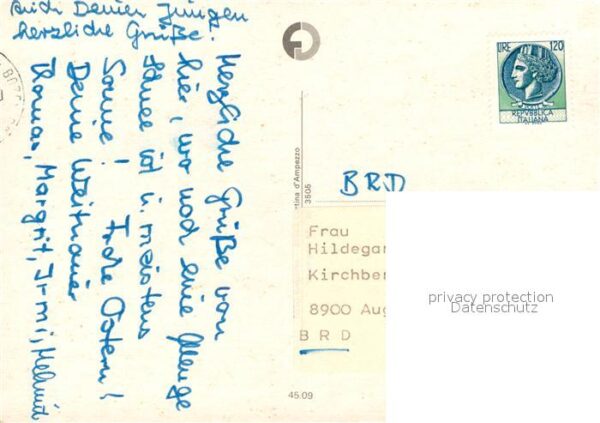 Auch Deinen Jungen
herzliche Grüße.
Herzliche Grüße von
hier, wo noch eine Menge
Schnee ist u. meistens
Sonne! Frohe Ostern!
Deine Weitnauer
Thomas, Margrit, Irmi, Helmut
LIRE 120
REPVBBLICA
ITALIANA
tina d'Ampezzo
3505
BRD
Frau
Hildegar
Kirchber
8900 Aug
BRD
privacy protection
Datenschutz
45.09